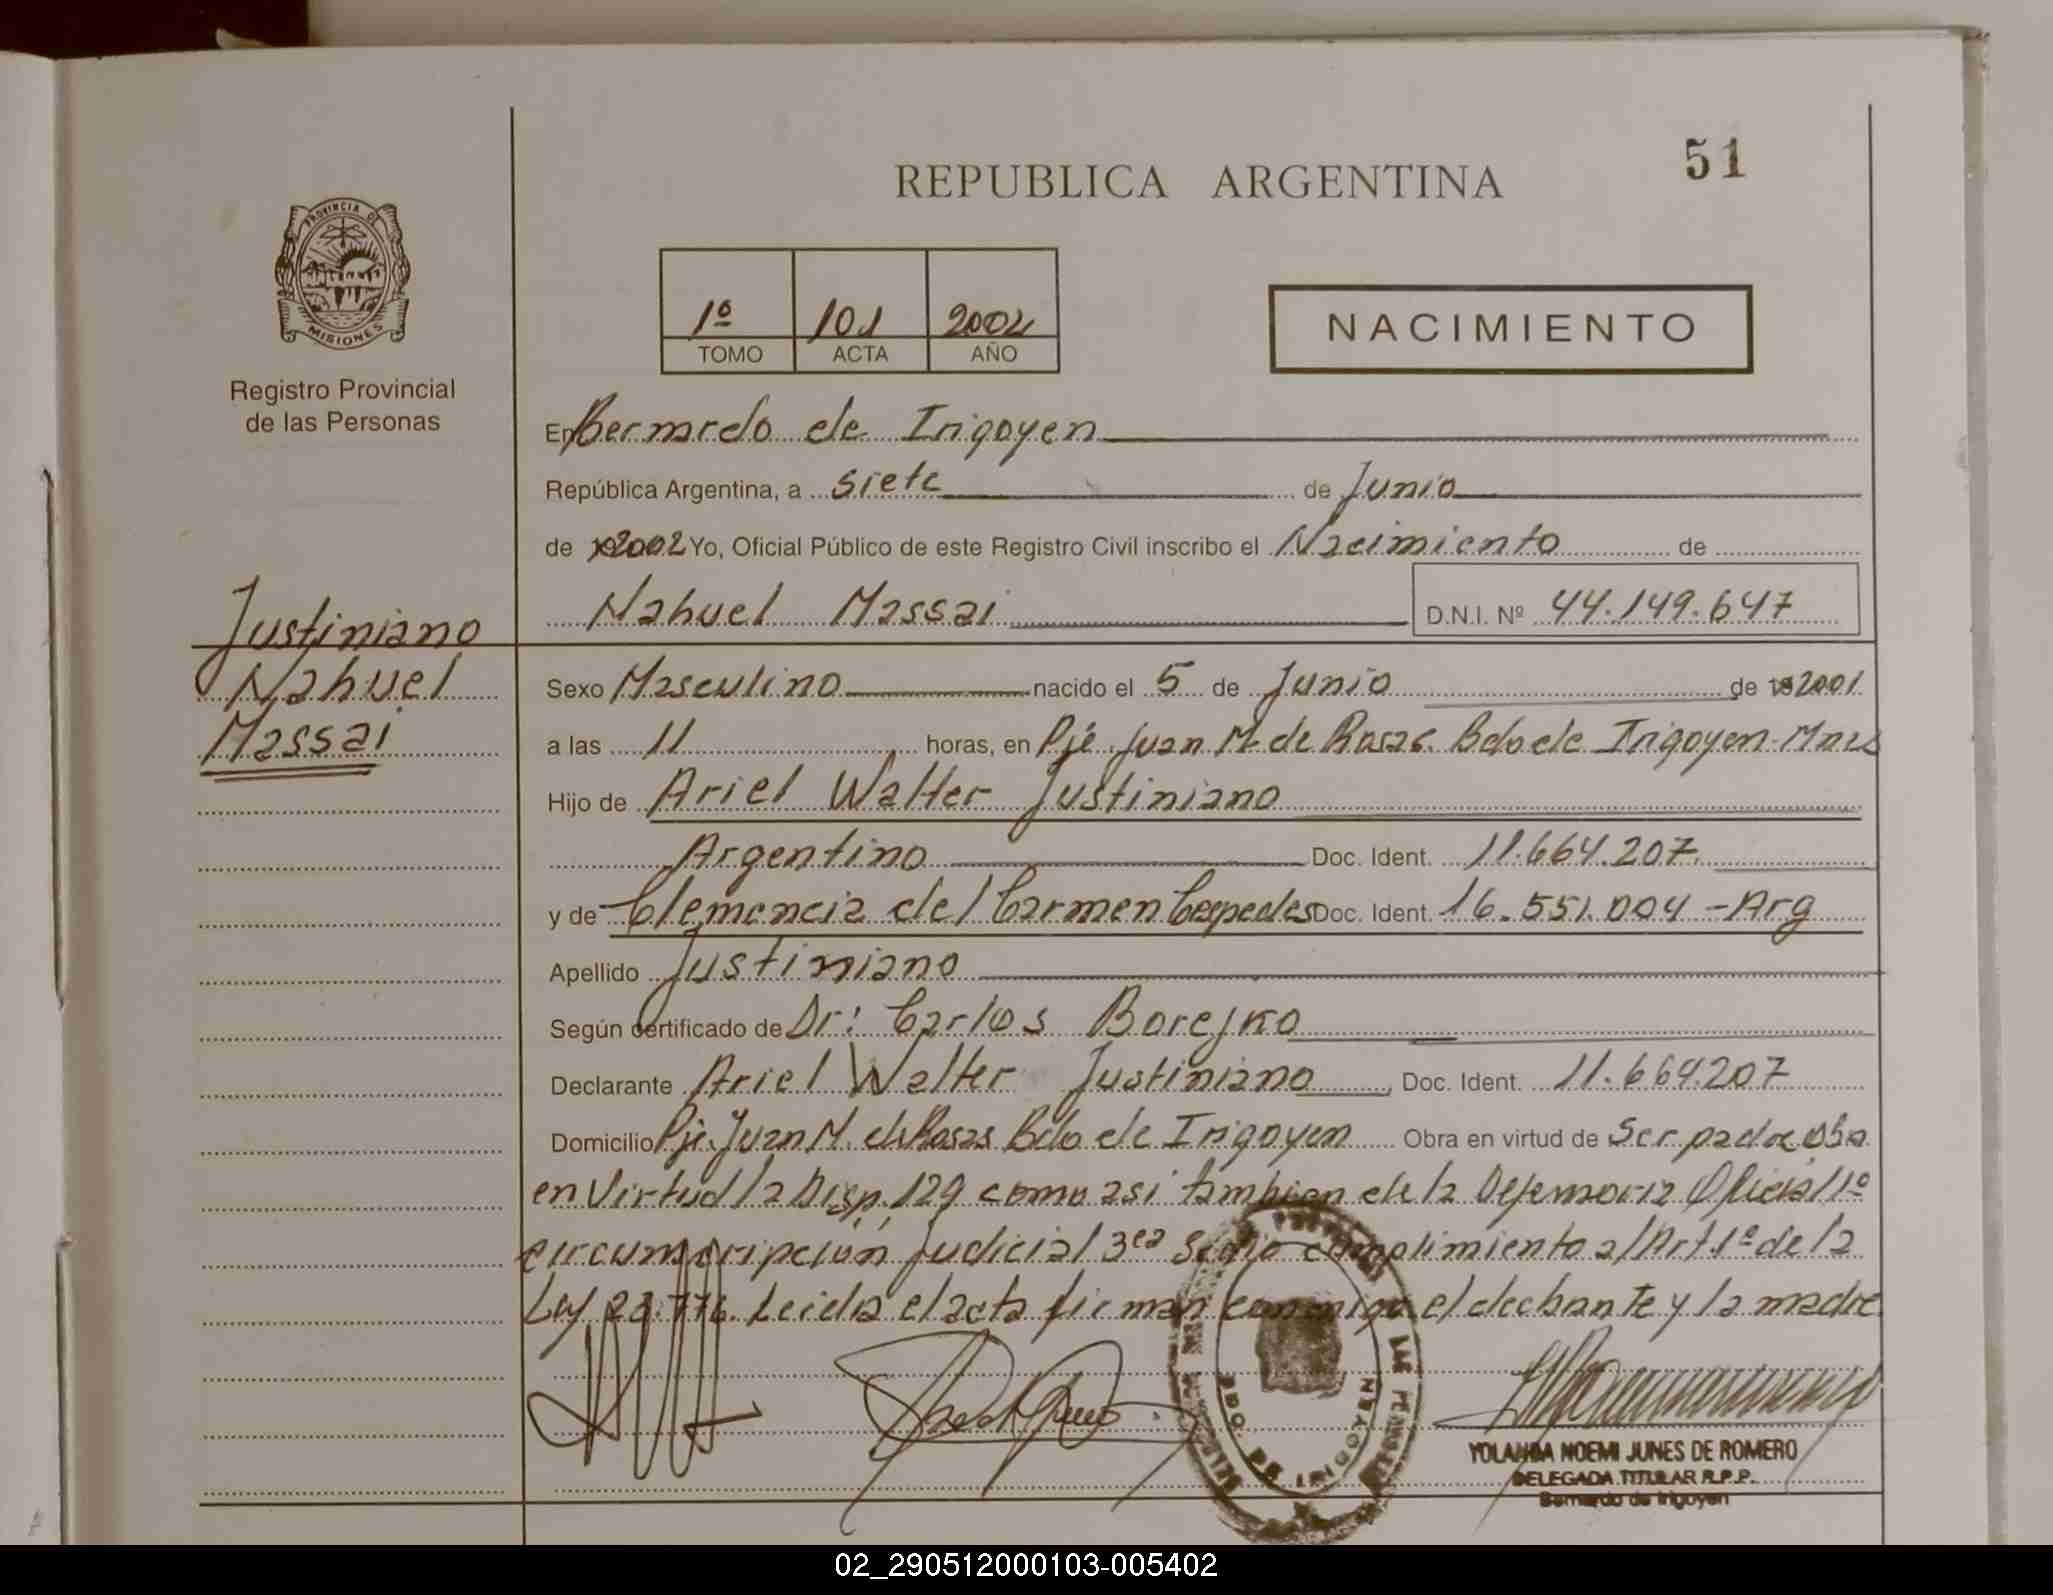 51
REPUBLICA ARGENTINA
PROVINCIA DE
MISIONES
Registro Provincial
de las Personas
1º 101 2002
TOMO ACTA AÑO
NACIMIENTO
En Bernardo de Irigoyen
República Argentina, a siete de Junio
de 2002 Yo, Oficial Público de este Registro Civil inscribo el Nacimiento de
Nahuel Massai D.N.I. Nº 44.149.647
Justiniano
Nahuel
Massai
Sexo Masculino nacido el 5 de Junio de 2001
a las 11 horas, en Pje. Juan M. de Rosas. Bdo de Irigoyen-Mnes
Hijo de Ariel Walter Justiniano
Argentino Doc. Ident. 11.664.207
y de Clemencia del Carmen Cespedes Doc. Ident. 16.551.004 - Arg
Apellido Justiniano
Según certificado de Dr: Carlos Borejko
Declarante Ariel Walter Justiniano, Doc. Ident. 11.664.207
Domicilio Pje. Juan M. de Rosas Bdo de Irigoyen Obra en virtud de Ser padre
en Virtud la Disp. 129 como asi tambien de la Defensoria Oficial 1º
circunscripción Judicial 3era cumplimiento al Art 1º de la
Ley 23.776. Leida el acta firman conmigo el declarante y la madre
BDO. DE IRIGOYEN
YOLANDA NOEMI JUNES DE ROMERO
DELEGADA TITULAR R.P.P.
Bernardo de Irigoyen
02_290512000103-005402